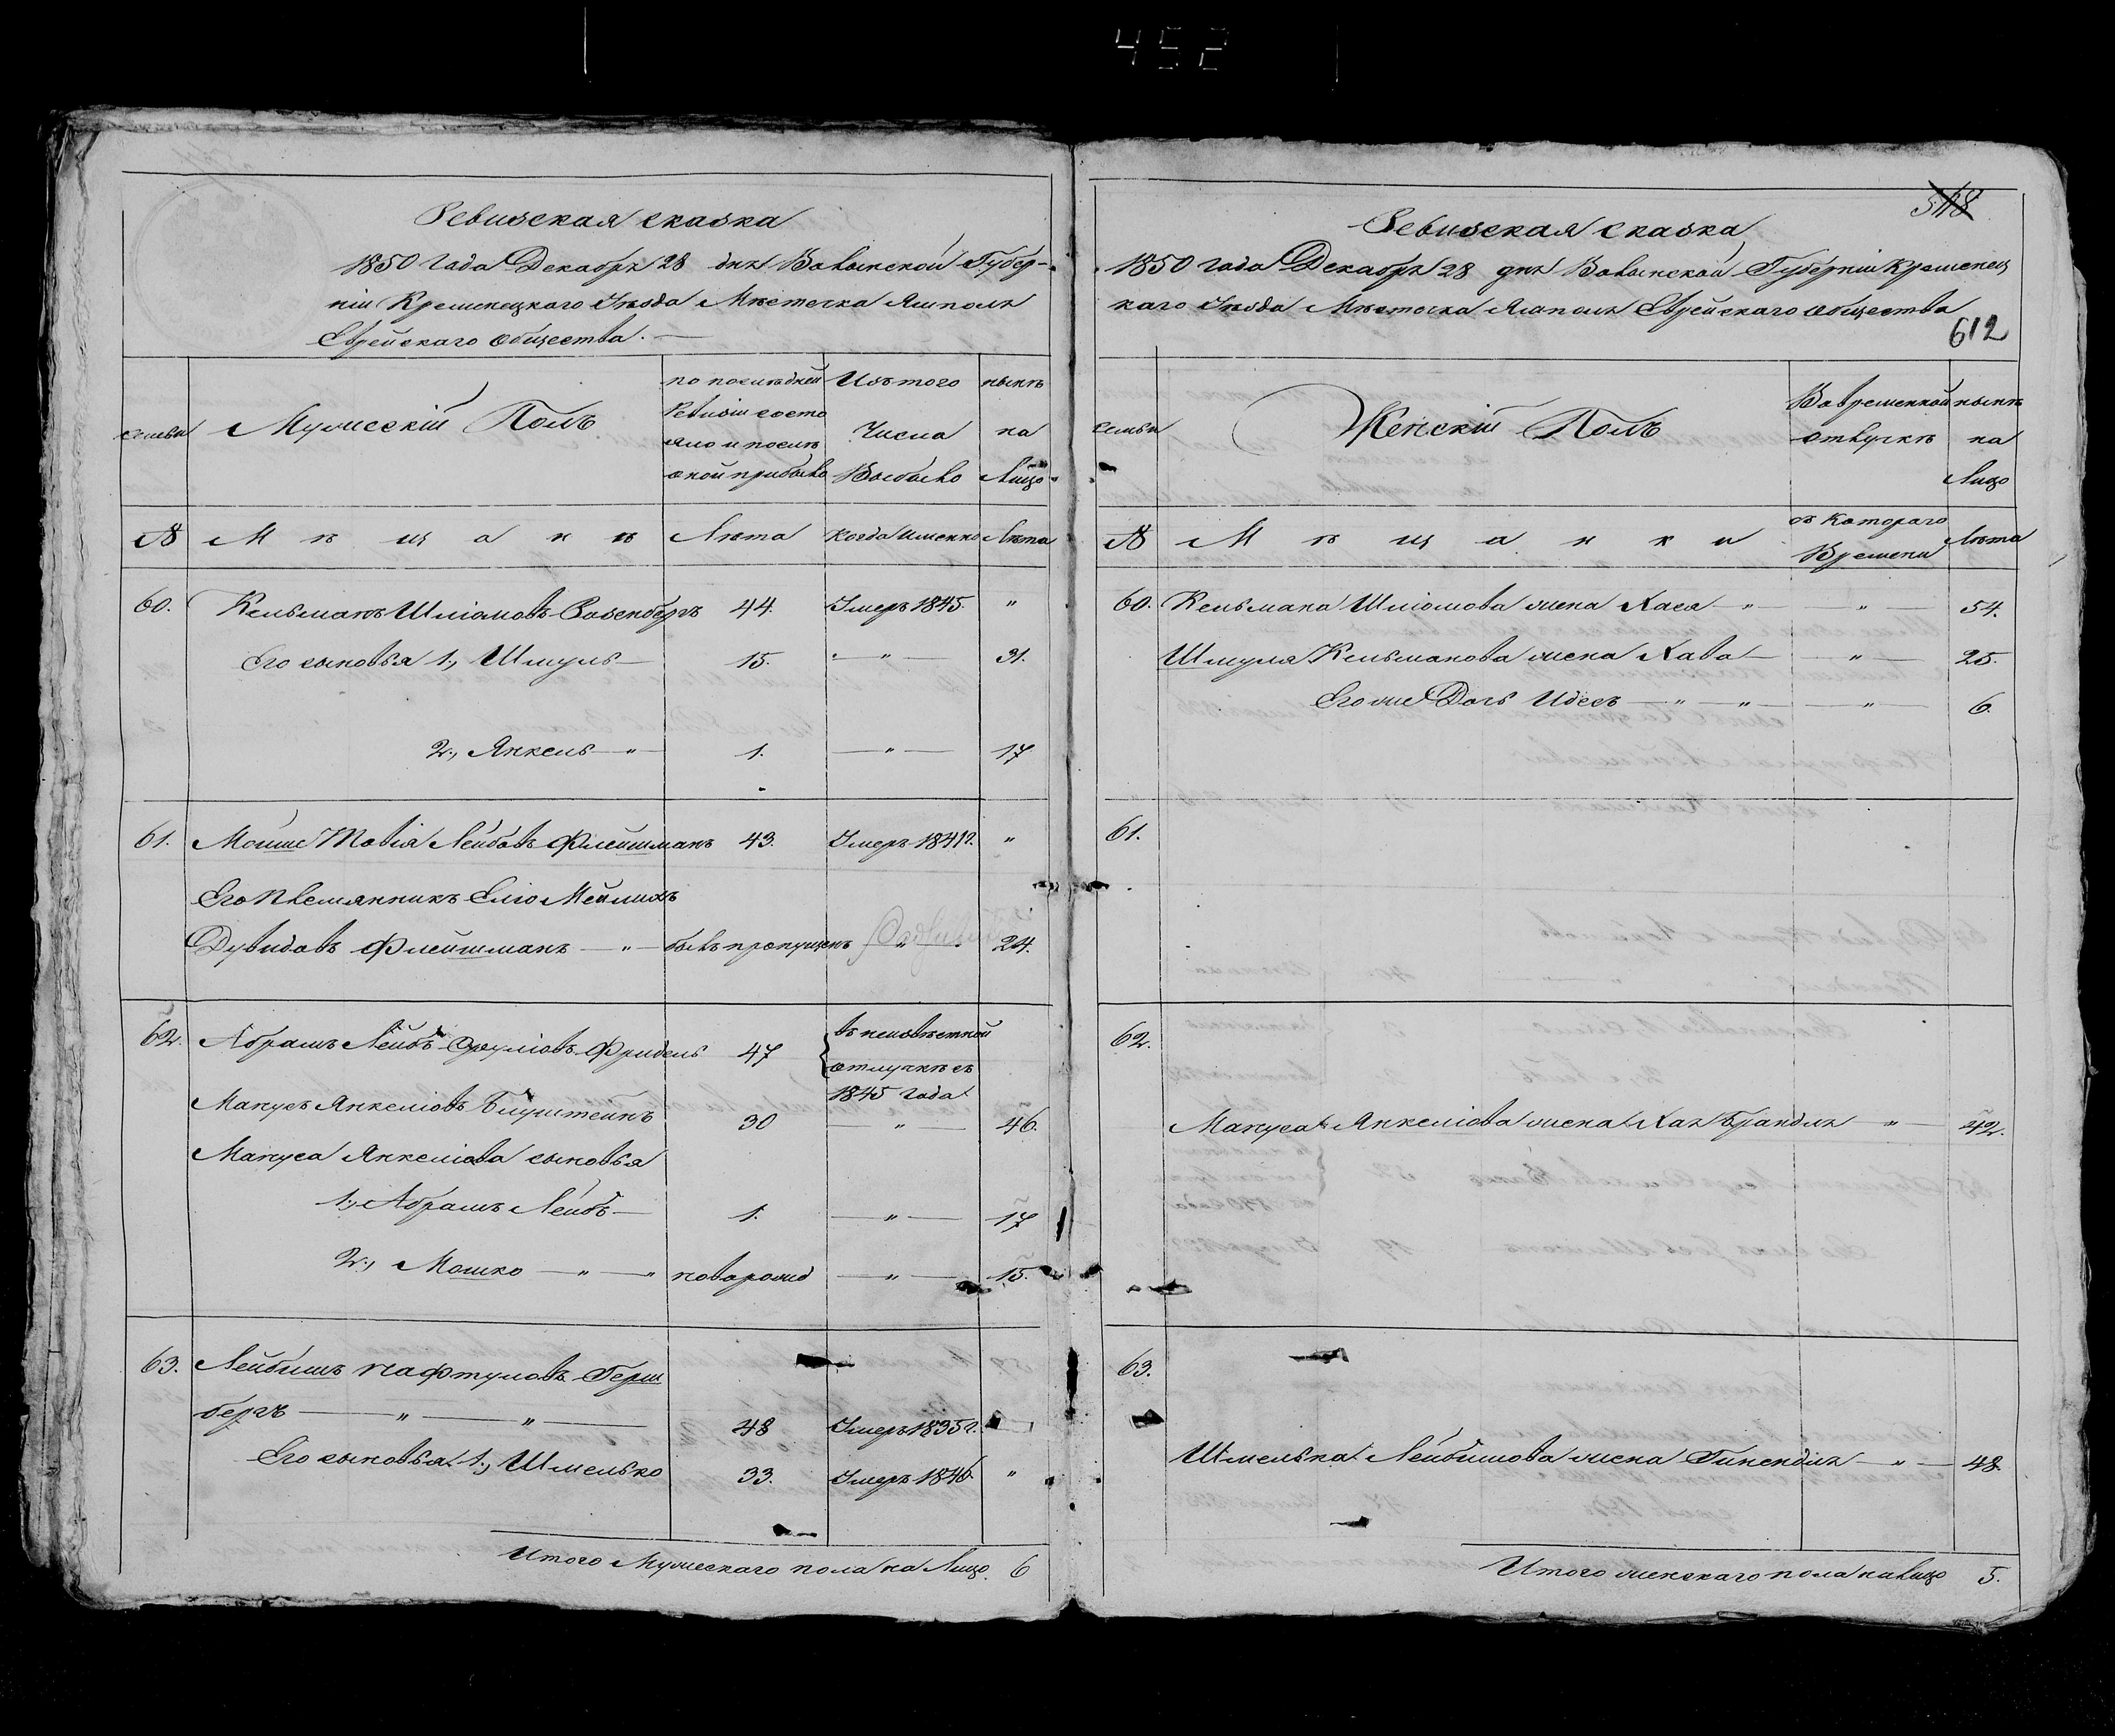 452
Ревизская сказка
1850 года Декабря 28 дня Волынской Губер-
ніи Кременецкаго Уѣзда Мѣстечка Ямполя
Еврейскаго Общества.
семьи
Мужескій Полъ
по послѣдней
Ревизіи состо
яло и послѣ
оной прибыло
Изъ того
Числа
Выбыло
нынѣ
на
Лицо
№
Мѣщанѣ
Лѣта
когда именно
Лѣта
60. Кельманъ Шліомовъ Розенбергъ 44. Умеръ 1845. "
Его сыновья 1., Шмуль — 15. — " — 31.
2., Янкель — " — 1. — " — 17
61. Мошше Товія Лейбовъ Флейшманъ 43. Умеръ 1841г. "
Его племянникъ Еліо Мейлихъ
Дувидовъ Флейшманъ — " — былъ пропущенъ " 24.
62. Абрамъ Лейбъ Фридель 47 въ неизвѣстной
отлучкѣ съ
1845 года
Манусъ Янкеліовъ Блуштейнъ 30 — " — 46.
Мануса Янкеліова сыновья
1., Абрамъ Лейбъ — 1. — " — 17
2., Мошко — " — " новорожд — " — 15.
63. Лейбишъ Нафтуловъ Герш
бергъ — " — " — 48 Умеръ 1835г.
Его сыновья 1., Шмелько 33. Умеръ 1846. "
Итого Мужескаго пола на Лицо. 6
518
Ревизская сказка
1850 года Декабря 28 дня Волынской Губерніи Кременец
каго Уѣзда Мѣстечка Ямполя Еврейскаго Общества
612
семьи
Женскій Полъ
Во временной
отлучкѣ
нынѣ
на
Лицо
№
Мѣщанки
съ котораго
Времени
Лѣта
60. Кельмана Шліомова жена Хася — " — " — 54.
Шмуля Кельманова жена Хава — " — 25.
Его же Дочь Идесъ — " — " — " — 6.
61.
62.
Мануса Янкеліова жена Хая Брандля " — 42.
63.
Шмелька Лейбишова жена Гинендля — " — 48.
Итого женскаго пола на лицо 5.